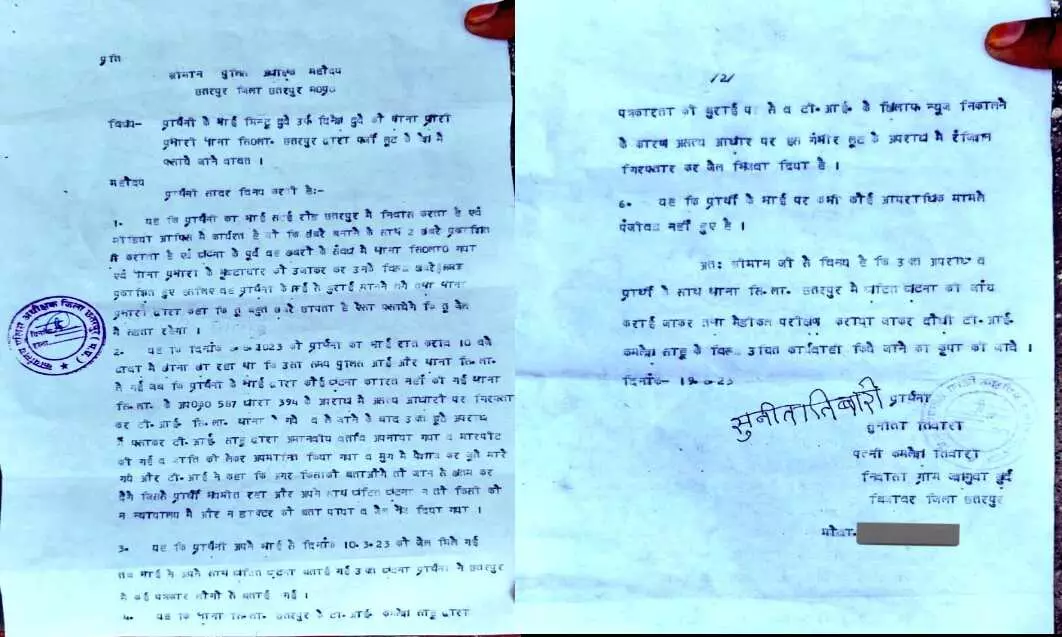 प्रति
श्रीमान पुलिस अधीक्षक महोदय
छतरपुर जिला छतरपुर म०प्र०
विषय- प्रार्थिनी के भाई मिन्टू दुबे उर्फ दिनेश दुबे को थाना द्वारा
प्रभारी थाना सि०ला० छतरपुर द्वारा फर्जी लूट के केश में
फसाये जाने वावत ।
महोदय
प्रार्थिनी सादर विनय करती है:-
1. यह कि प्रार्थिनी का भाई सटई रोड छतरपुर में निवास करता है एवं
मीडिया आफिस में कार्यरत है जो कि खबरे बनाने के साथ खबरे प्रकाशित
कराता है एवं घटना के पूर्व वह खबरो के संबंध में थाना सि०ला० गया
एवं थाना प्रभारी के भ्रष्टाचार को उजागर कर उनके विरूद्ध खबरे
प्रकाशित हुई प्रार्थिनी के भाई से बुराई मानने लगे तथा थाना
प्रभारी द्वारा कहा कि तू बहुत खबरे छापता है ऐसा फसायेंगे कि तू जेल
में सडता रहेगा ।
2. यह कि दिनांक 2023 को प्रार्थिनी का भाई रात करीब 10 बजे
ढाबा में खाना खा रहा था कि उसी समय पुलिस आई और थाना सि.ला.
ले गई जब कि प्रार्थिनी के भाई द्वारा कोई घटना कारित नहीं की गई थाना
सि.ला. के अप०क्र० 587 धारा 394 के अपराध में असत्य आधारो पर गिरफ्तार
कर टी.आई. सि.ला. थाना ले गये व ले जाने के बाद उक्त झूठे अपराध
में फसाकर टी.आई. साहू द्वारा अमानवीय बर्ताव अपनाया गया व मारपीट
की गई व जाति को लेकर अपमानित किया गया व मुंह में पेशाब कर जूते मारे
गये और टी.आई ने कहा कि अगर किसीको बताओगे तो जान से खतम कर
देंगे जिससे प्रार्थी भयभीत रहा और अपने साथ घटित घटना न तो किसी को
न न्यायालय में और न डाक्टर को बता पाया व जेल भेज दिया गया ।
3. यह कि प्रार्थिनी अपने भाई से दिनांक 10.3.23 को जेल मिलने गई
तब भाई ने अपने साथ घटित घटना बताई गई उक्त घटना प्रार्थिनी ने छतरपुर
में कई पत्रकार लोगों से बताई गई ।
4. यह कि थाना सि.ला. छतरपुर के टी.आई. कमलेश साहू द्वारा
/2/
पत्रकारिता की बुराई पर से व टी.आई. के खिलाफ न्यूज निकालने
के कारण असत्य आधार पर इस गंभीर लूट के अपराध में रंजिशन
गिरफ्तार कर जेल भिजवा दिया है ।
6. यह कि प्रार्थी के भाई पर कभी कोई आपराधिक मामले
पंजीवद्ध नहीं हुए है ।
अत: श्रीमान जी से विनय है कि उक्त अपराध व
प्रार्थी के साथ थाना सि.ला. छतरपुर में घटित घटना की जाँच
कराई जाकर तथा मेडीकल परीक्षण कराया जाकर दोषी टी.आई.
कमलेश साहू के विरूद्ध उचित कार्यवाही किये जाने की कृपा की जावे ।
दिनांक-
सुनीता तिवारी
प्रार्थिनी
सुनीता तिवारी
पत्नी कमलेश तिवारी
निवासी ग्राम खुर्द
बिजावर जिला छतरपुर
मोबा.
कार्यालय पुलिस अधीक्षक जिला छतरपुर (म.प्र.)